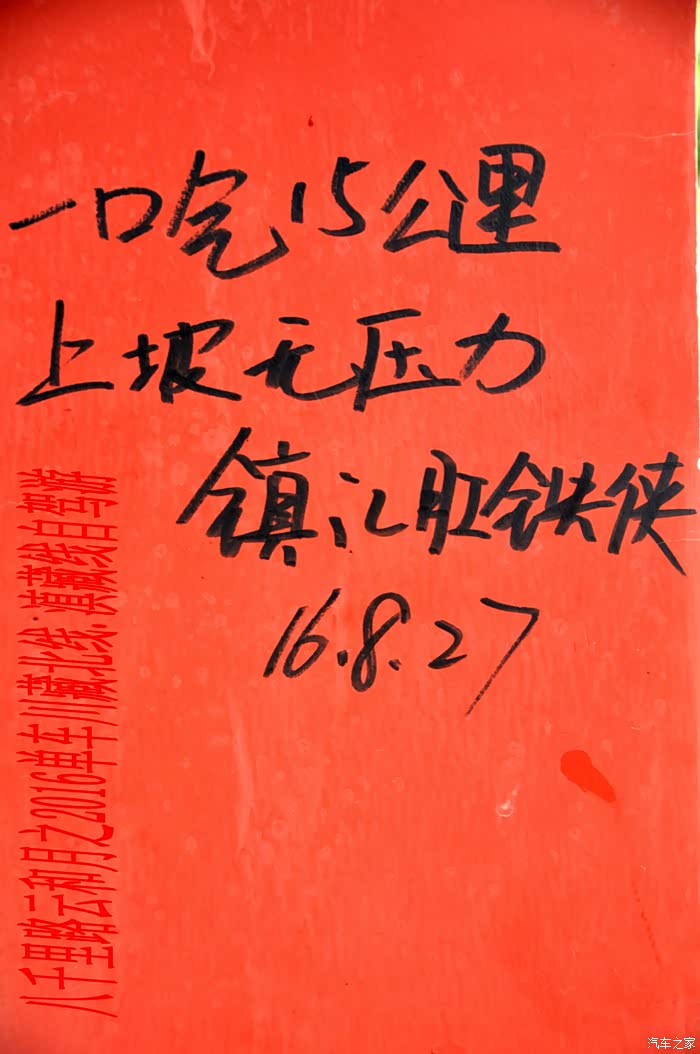 一口气15公里
上坡无压力
镇江肛铁侠
16.8.27
八千里路云和月之2016单车川藏北线·滇藏线自驾游
汽车之家